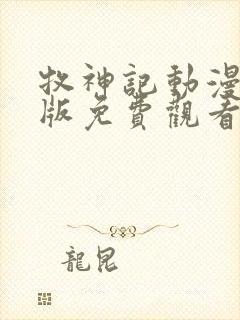 牧神記動漫
版免費觀看
龍昆